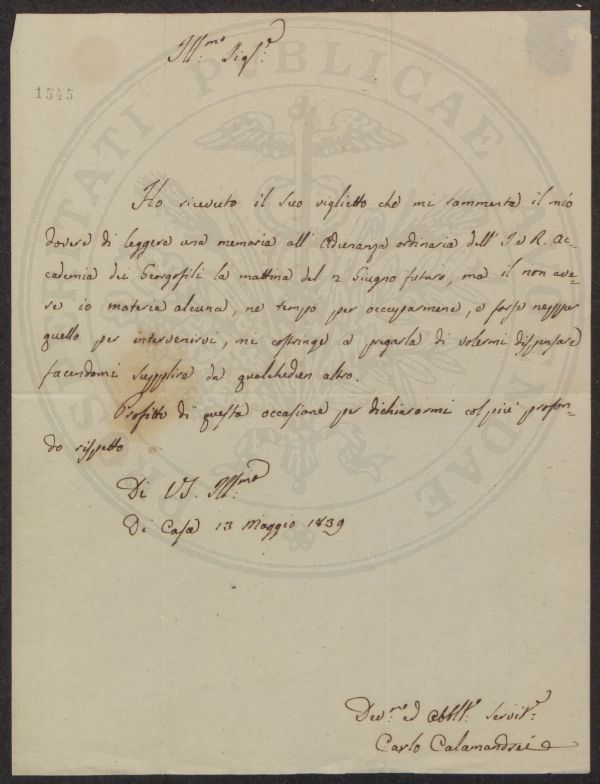 Ill:mo Sig:e
1545
Ho ricevuto il suo viglietto che mi rammenta il mio
dovere di leggere una memoria all' Adunanza ordinaria dell' I e R. Ac=
cademia dei Georgofili la mattina del 2 Giugno futuro, ma il non ave=
re io materia alcuna, ne tempo per occuparmene, e forse neppur
quello per intervenirvi, mi costringe a pregarla di volermi dispensare
facendomi supplire da qualchedun altro.
Profitto di questa occasione per dichiararmi col più profon=
do rispetto
Di VS. Ill:ma
Di Casa 13 Maggio 1839
Dev:mo ed Obbl:o Servit:e
Carlo Calamandrei
PROSPERITATI PUBLICAE AUGENDAE